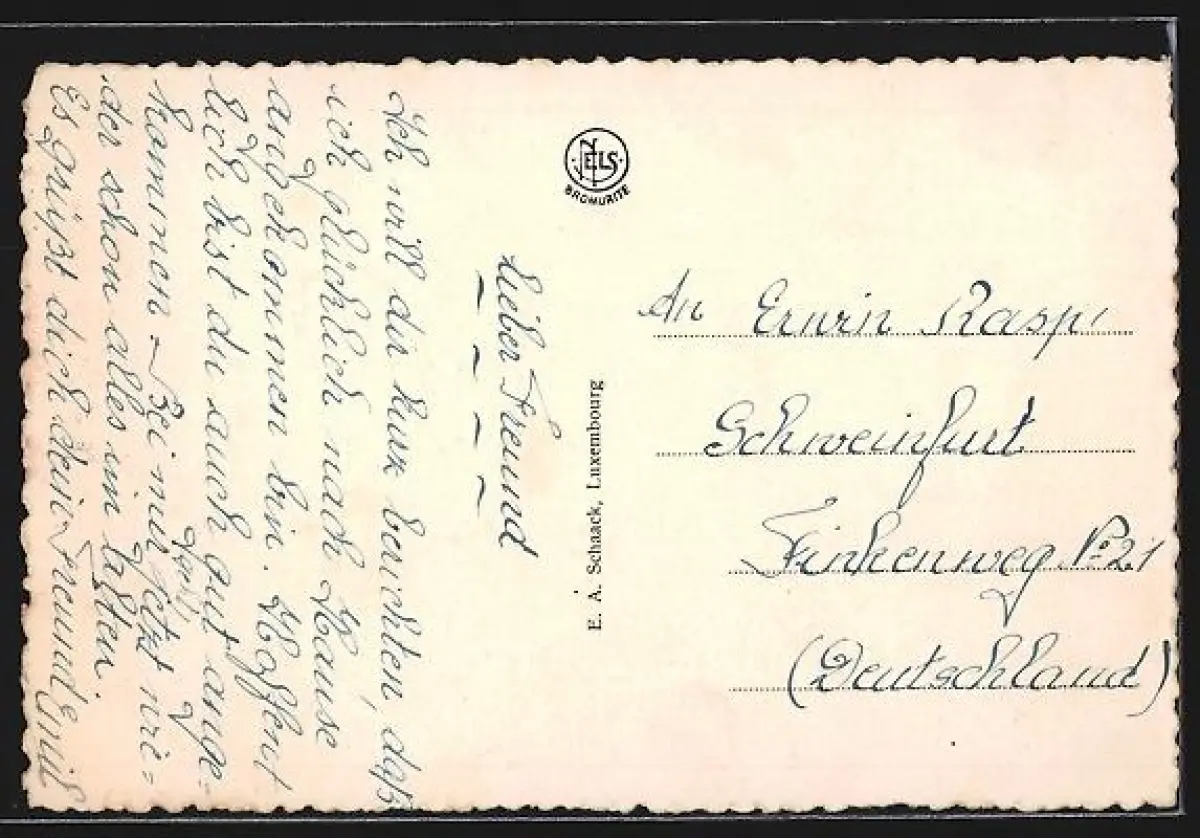 Lieber Freund
Ich will dir kurz berichten, daß
ich glücklich nach Hause
angekommen bin. Hoffent
lich bist du auch gut ange-
kommen. Bei mir jetzt wie=
der schon alles im
Es grüßt dich dein Freund Emil
NELS
BROMURITE
E. A. Schaack, Luxembourg
An Erwin Rasp
Schweinfurt
Finkenweg No 21
(Deutschland)